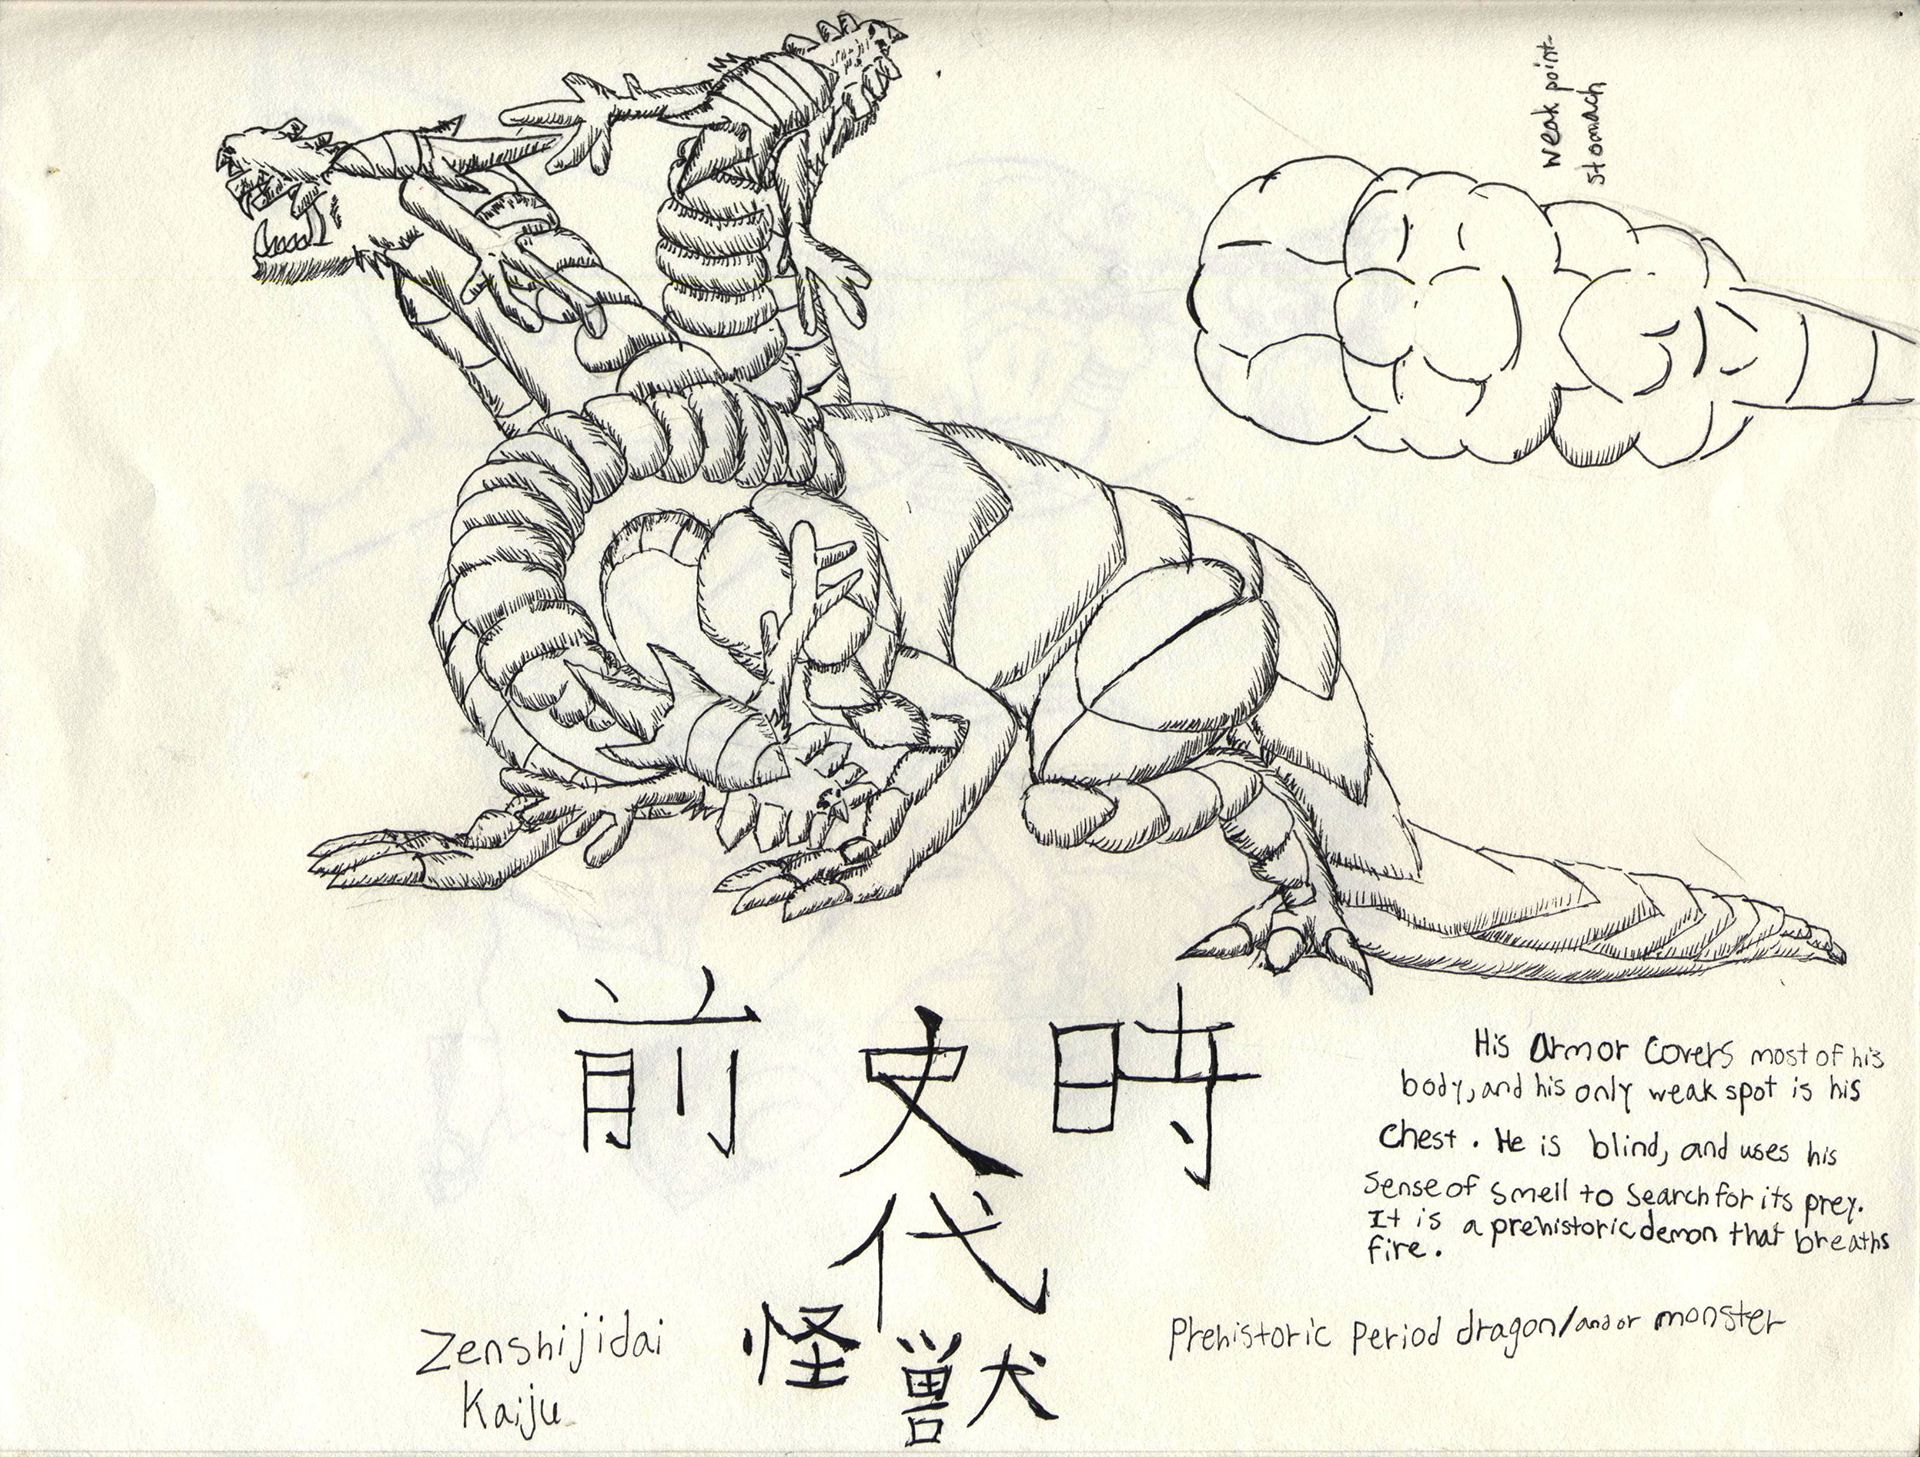 weak point-
stomach
前史時
代
怪獣
His armor covers most of his
body, and his only weak spot is his
chest. He is blind, and uses his
sense of smell to search for its prey.
It is a prehistoric demon that breaths
fire.
Zenshijidai
Kaiju
Prehistoric Period dragon/and or monster